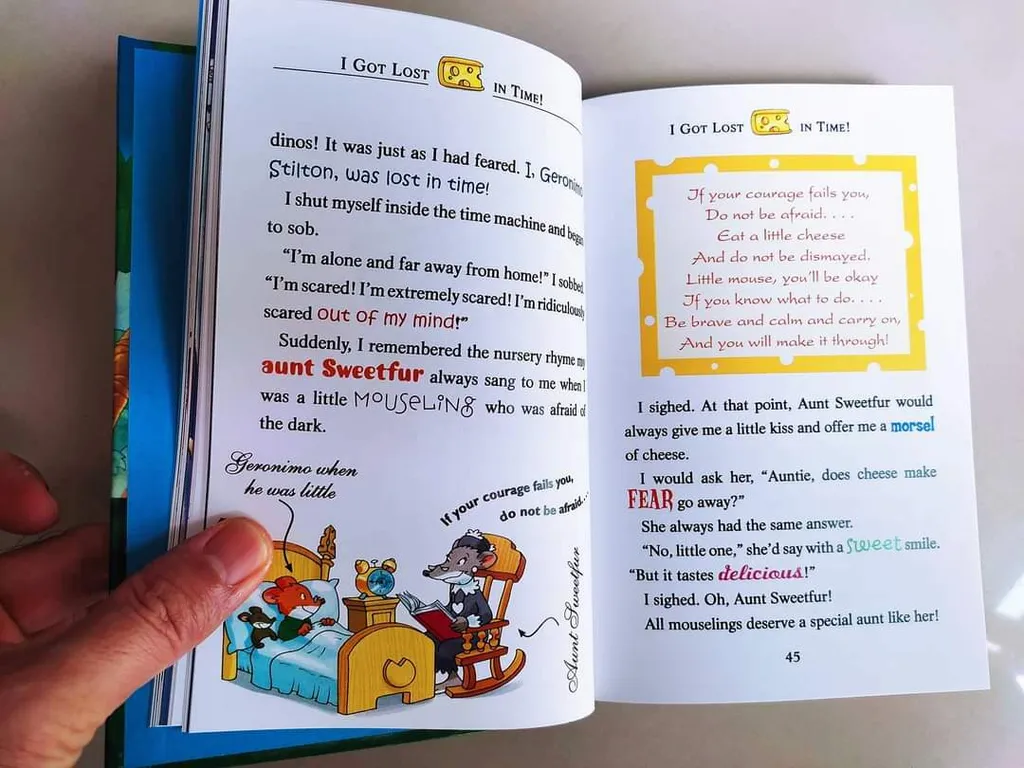 I GOT LOST IN TIME!
dinos! It was just as I had feared. I, Geronimo
Stilton, was lost in time!
I shut myself inside the time machine and began
to sob.
"I'm alone and far away from home!" I sobbed.
"I'm scared! I'm extremely scared! I'm ridiculously
scared out of my mind!"
Suddenly, I remembered the nursery rhyme my
aunt Sweetfur always sang to me when I
was a little MOUSELING who was afraid of
the dark.
Geronimo when
he was little
If your courage fails you,
do not be afraid...
Aunt Sweetfur
I GOT LOST IN TIME!
If your courage fails you,
Do not be afraid. . . .
Eat a little cheese
And do not be dismayed.
Little mouse, you'll be okay
If you know what to do. . . .
Be brave and calm and carry on,
And you will make it through!
I sighed. At that point, Aunt Sweetfur would
always give me a little kiss and offer me a morsel
of cheese.
I would ask her, "Auntie, does cheese make
FEAR go away?"
She always had the same answer.
"No, little one," she'd say with a sweet smile.
"But it tastes delicious!"
I sighed. Oh, Aunt Sweetfur!
All mouselings deserve a special aunt like her!
45